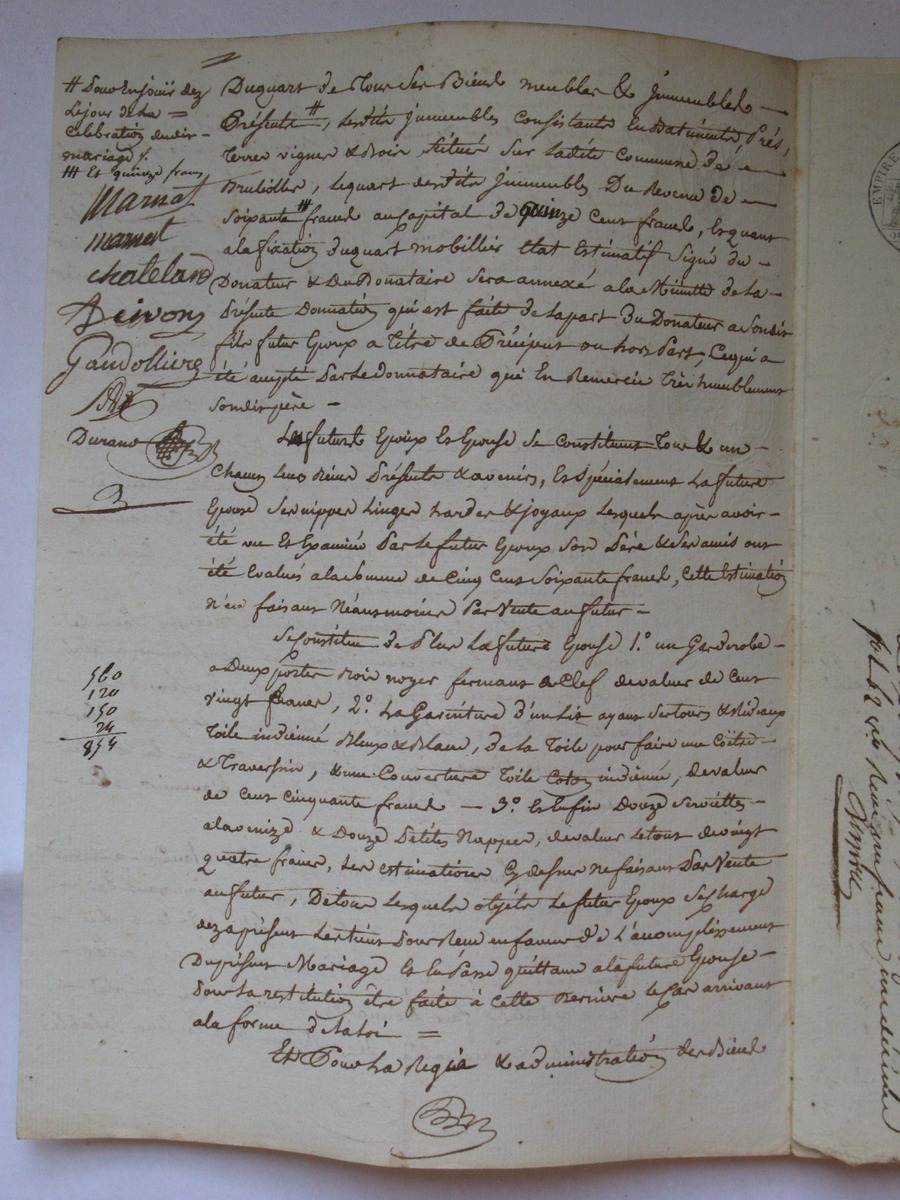 # Pour En jouir dez
Le jour de La =
Célébration dudit
mariage ./.
## Et quinze francs
Marnat
marnat
chatelard
Gaudollière
Durand
560
120
150
24
854
Du quart de Tous Ses Biens meubles & jmmeubles —
Présents #, Lesdits jmmeubles consistants En Batiments, Prés,
Terres vignes & Bois, Situés Sur Ladite Commune de —
Brulioles, Le quart desdits jmmeubles Du Revenu de —
Soixante ## francs au Capital de quinze Cent francs, Et quant
a la fixation du quart mobillier Etat Estimatif Signé du —
Donateur & Du Donataire Sera annexé a la Minutte de La —
Présente Donnation qui est faite de La part Du Donateur a Son dit
fils futur Epoux a Titre de Préciput ou hors Part, Ce qui a
été accepté Par Le donnataire qui En Remercie Très humblement
Son dit père —
Les futurs Epoux Et Epouse Se Constituent Tous & un —
Chacun Leurs Biens Présents & avenirs, Et Spécialement La future
Epouse Ses nippes Linges hardes & joyaux Lesquels après avoir —
été vu Et Examiné Par Le futur Epoux Son Père & Ses amis ont
été Evalués a la Somme de Cinq Cent Soixante francs, Cette Estimation
n'en faisant Néansmoins Pas Vente au futur —
Se Constitue de Plus La future Epouse 1.° un Garderobe —
a Deux portes Bois noyer fermant a Clef de valeur de Cent
vingt francs, 2.° La Garniture d'un Lit ayant Ses tours & Rideaux
Toile indienne Bleux & Blanc, de La Toile pour faire une Coitre —
& Traversin, & une Couverture Toile Coton indienne, de valeur
de Cent Cinquante francs — 3.° Et Enfin Douze Serviettes —
a la venize & Douze Petites Nappes, de valeur Le tout de vingt
quatre francs, Les estimations Cy dessus ne faisant Pas Vente
au futur, De tous Lesquels objets Le futur Epoux Se charge
dez a présent Les tient Pour Reçu en faveur de L'accomplissement
Du présent Mariage Et En Passe quittance a la future Epouse —
Pour La restitution être faite à Cette Dernière le Cas arrivant
a la forme de La Loi =
Et Pour La Regie & administration des Biens
EMPIRE